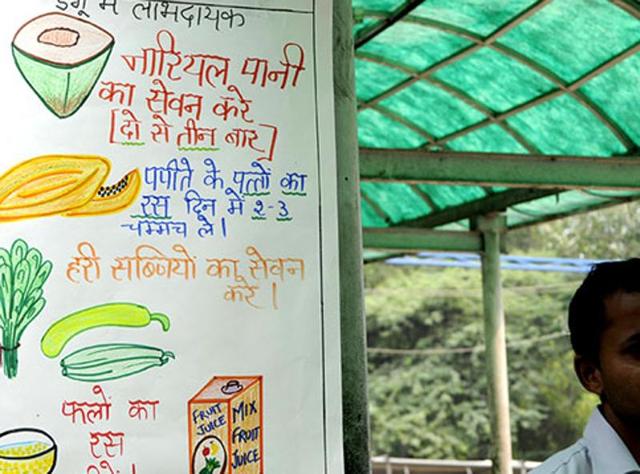 डेंगू में लाभदायक
नारियल पानी
का सेवन करे
[दो से तीन बार]
पपीते के पत्तों का
रस दिन में २-3
चम्मच ले।
हरी सब्जियों का सेवन
करे।
फलों का
रस
FRUIT
JUICE
MIX
FRUIT
JUICE